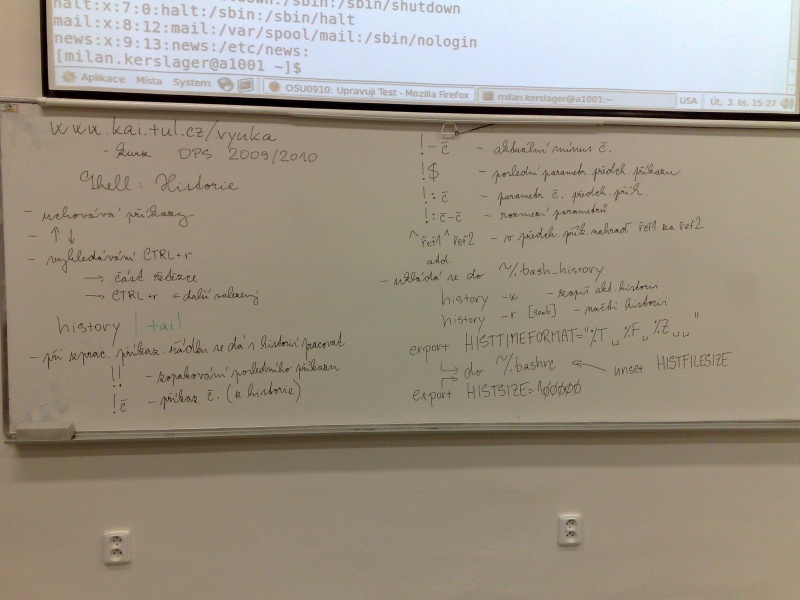 halt:x:7:0:halt:/sbin:/sbin/halt
mail:x:8:12:mail:/var/spool/mail:/sbin/nologin
news:x:9:13:news:/etc/news:
[milan.kerslager@a1001 ~]$
Aplikace Místa System OSU0910: Upravuji Test - Mozilla Firefox milan.kerslager@a1001:~ USA Út, 3. lis, 15:27
www.kai.tul.cz/vyuka
- kurz OPS 2009/2010
Shell: Historie
- uchovává příkazy
- ↑ ↓
- vyhledávání CTRL+r
→ část řetězce
→ CTRL+r ← další nalezený
history | tail
- při zprac. příkaz. řádku se dá s historií pracovat
!! - zopakování posledního příkazu
!č - příkaz č. (z historie)
!-č - aktuální mínus č.
!$ - poslední parametr předch. příkazu
!:č - parametr č. předch. přík.
!:č-č - rozmezí parametrů
^řet1^řet2 - v předch. přík. nahraď řet1 za řet2
- ukládá se do ~/.bash_history
history -w - zapiš akt. historii
history -r [soub] - načti historii
export HISTTIMEFORMAT="%T ␣ %F ␣ %Z ␣ ␣"
↳ do ~/.bashrc ← unset HISTFILESIZE
export HISTSIZE=100000